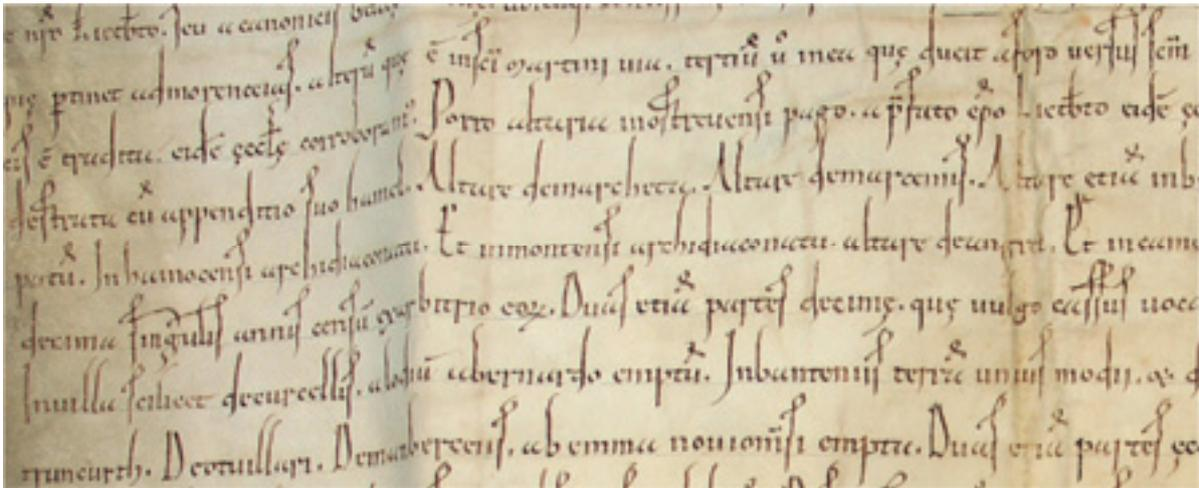 nrō lietbto. seu a canonicis
pinet admorenceias. alterū quę ē insc̄i martini uia. tertiū ū inea quę ducit aforo uersus sc̄m
ē tradita. eidē ęccłę corroborant. Porro altaria inostreuensi pago. a p̄fato ep̄o Lietbto eidē
destrata cū appenditio suo hamel. Altare demarcheta. Altare demarcenis. Altare etiā inb
Inhainocensi archidiaconatu. Et inmontensi archidiaconatu. altare deangrel. Et incame
decima singulis annis censū arbitrio eoꝝ. Duas etiā partes decimę. quę uulgo cassus uoca
Inuilla scilicet decurcellis. alodiū abernardo emptū. Inbanteniis terrā unius modii. &
truncurth. Deotuillari. Demarberceis. ab emma nouiom̄si empta. Duas etiā partes ęc